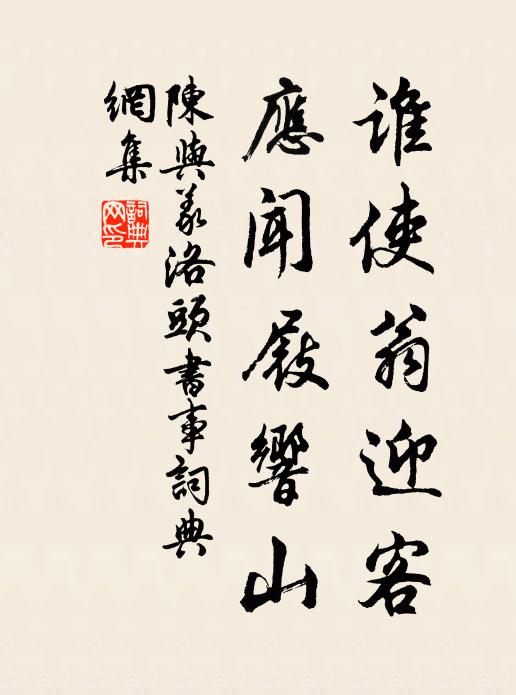 誰使翁迎客
應聞屐響山
陳與義洛頭書事詞典
網集
詞典
网印